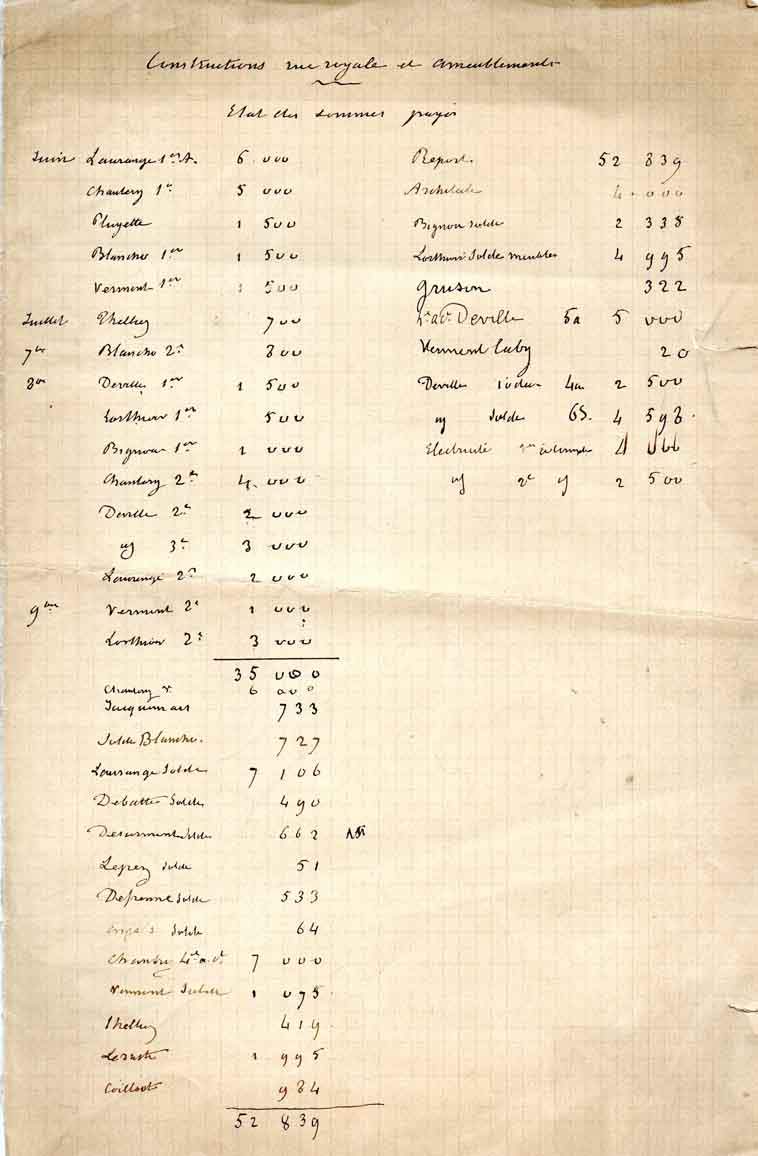 Constructions rue royale et ameublements
Etat des sommes payés
Juin Laurange 1er A. 6 000
Chantery 1er 5 000
Pluyette 1 500
Blanche 1er 1 500
Vermont 1er 1 500
Juillet Thellier 700
7bre Blanche 2e 800
8bre Deville 1er 1 500
Lorthioir 1er 500
Bignon 1er 1 000
Chantery 2e 4 000
Deville 2e 2 000
3e 3 000
Laurange 2e 2 000
9bre Vermont 2e 1 000
Lorthioir 2e 3 000
35 000
6 000
Jacquemart 733
Solde Blanche. 727
Laurange Solde 7 106
Debatte Solde 490
Solde 662
Leprez Solde 51
Defrenne Solde 533
Solde 64
4e a. ct 7 000
Vermont Solde 1 075
Thellier 419
1 995
984
52 839
Report. 52 839
Architecte 4 000
Bignon Solde 2 338
Lorthioir Solde meubles 4 995
Gruson 322
Deville 5a 5 000
Vermont 20
Deville 4a 2 500
Solde 6S. 4 598
Electricité 1er
2e 2 500